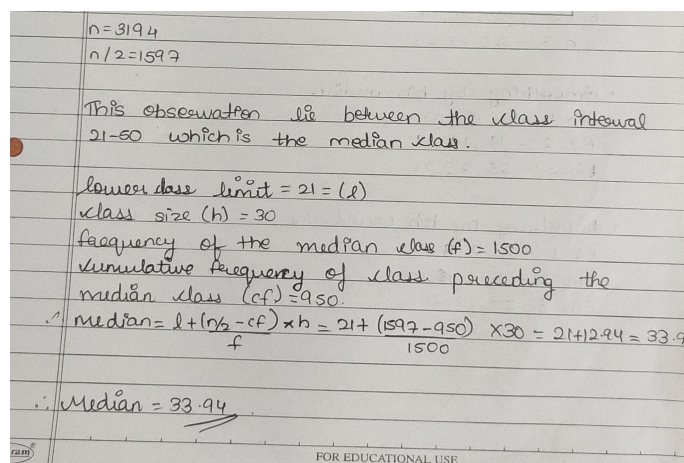 n=3194
n/2=1597
This observation lie between the class interval
21-50 which is the median class.
lower class limit = 21 = (l)
class size (h) = 30
frequency of the median class (f) = 1500
cumulative frequency of class preceding the
median class (cf) = 950.
∴ median = l + (n/2 - cf) × h = 21 + (1597-950) × 30 = 21+12.94 = 33.9
f 1500
∴ Median = 33.94
ram®
FOR EDUCATIONAL USE